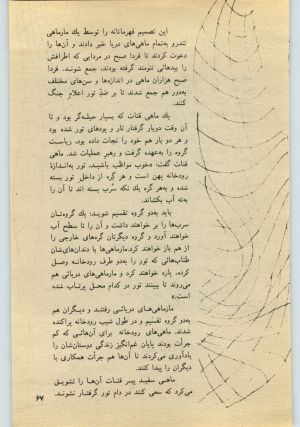 این تصمیم قهرمانانه را توسط یك مارماهی
تندرو به‌تمام ماهی‌های دریا خبر دادند و آن‌ها را
دعوت کردند تا فردا صبح در مردابی که اطرافش
را بیدهائی تنومند گرفته بودند، جمع شوند. فردا
صبح هزاران ماهی در اندازه‌ها و سن‌های مختلف
به‌دور هم جمع شدند تا بر ضدِ تور اعلامِ جنگ
کنند.
یك ماهی قنات که بسیار حیله‌گر بود و تا
آن وقت دوبار گرفتار تار و پودهای تور شده بود
و هر دو بار هم خود را نجات داده بود، ریاست
گروه را به‌عهده گرفت و رهبرِ عملیات شد. ماهی
قنات گفت: «خوب مواظب باشید. تور به‌اندازهٔ
رودخانه پهن است و هر گره از داخل تور بسته
شده و به‌هر گره یك تکه سُرب بسته اند تا آن را
به‌ته آب بکشاند.
باید به‌دو گروه تقسیم شوید: یك گروه‌تان
سرب‌ها را بر خواهند داشت و آن را تا سطح آب
خواهند آورد و گروه دیگرتان گره‌های خارجی را
از هم باز خواهند کرد. مارماهی‌ها با دندان‌های‌شان
طناب‌هائی که تور را به‌دو طرف رودخانه وصل
کرده، پاره خواهند کرد و مارماهی‌های دریائی هم
می‌روند تا ببینند تور در کدام محل پرتاب شده
است.»
مارماهی‌های دریائی رفتند و دیگران هم
به‌دو گروه تقسیم و در طول شیب رودخانه پراکنده
شدند. ماهی‌های رودخانه برای آن‌هائی که کم
جرأت بودند پایان غم‌انگیز زندگی دوستان‌شان را
یادآوری می‌کردند تا آن‌ها هم جرأت همکاری با
دیگران را پیدا کنند.
ماهی سفید پیر قنات آن‌ها را تشویق
می‌کرد که سعی کنند در دام تور گرفتار نشوند.
۶۷